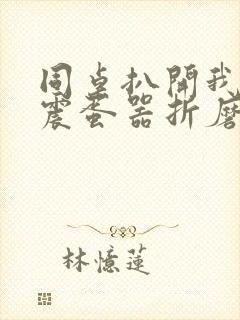 同桌扒開我
震蛋器折磨
林憶蓮